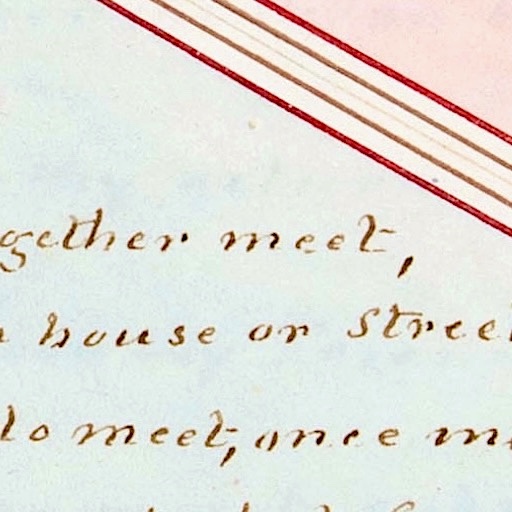 gether meet,
house or Street
do meet, once